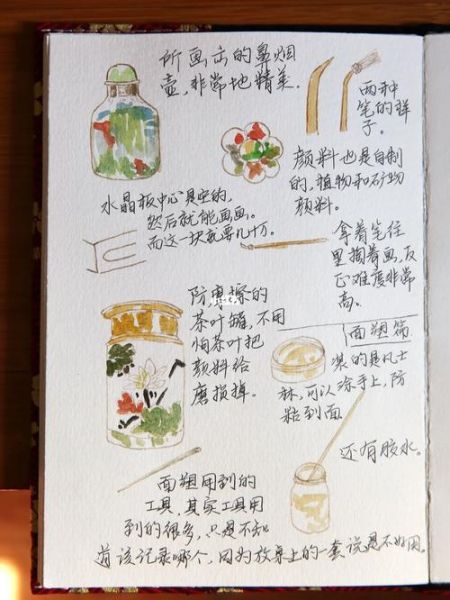 所画出的鼻烟
壶,非常地精美.
两种
笔的样
子.
颜料也是自制
的,植物和矿物
颜料。
水晶板中心是空的,
然后就能画画。
而这一块就要几十万.
拿着笔往
里掏着画,反
正难度非常
高.
防摩擦的
茶叶罐,不用
怕茶叶把
颜料给
磨损掉.
面塑篇
装的是凡士
林,可以涂手上,防
粘到面
还有胶水.
面塑用到的
工具,其实工具用
到的很多,只是不知
道该记录哪个,因为教桌上的一套说是不如用。